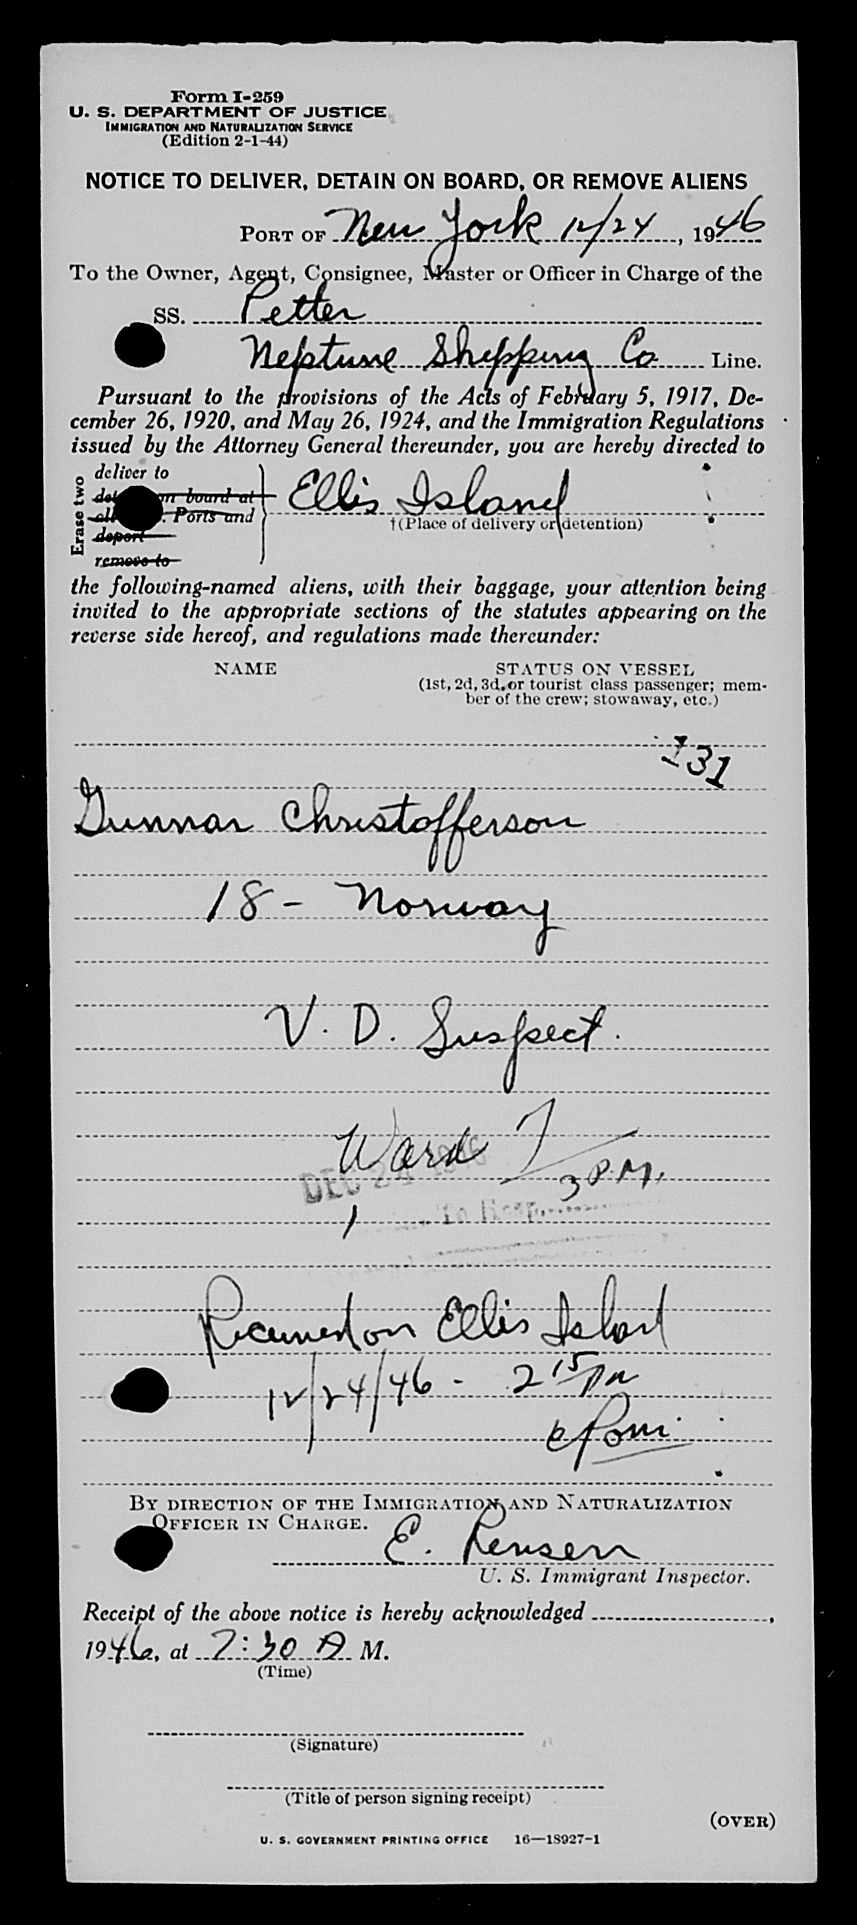 Form I-259
U. S. DEPARTMENT OF JUSTICE
IMMIGRATION AND NATURALIZATION SERVICE
(Edition 2-1-44)
NOTICE TO DELIVER, DETAIN ON BOARD, OR REMOVE ALIENS
PORT OF New York 12/24, 1946
To the Owner, Agent, Consignee, Master or Officer in Charge of the
SS. Petter
Neptune Shipping Co Line.
Pursuant to the provisions of the Acts of February 5, 1917, De-
cember 26, 1920, and May 26, 1924, and the Immigration Regulations
issued by the Attorney General thereunder, you are hereby directed to
Erase two
deliver to
on board at
Ports and
deport
remove to
Ellis Island
†(Place of delivery or detention)
the following-named aliens, with their baggage, your attention being
invited to the appropriate sections of the statutes appearing on the
reverse side hereof, and regulations made thereunder:
NAME STATUS ON VESSEL
(1st, 2d, 3d, or tourist class passenger; mem-
ber of the crew; stowaway, etc.)
131
Gunnar Christofferson
18 - Norway
V. D. Suspect.
Ward 7
DEC 24 1946
3 P.M.
To Hosp.
Received on Ellis Island
12/24/46 - 2 15 PM
By direction of the Immigration and Naturalization
Officer in Charge.
E. Rensen
U. S. Immigrant Inspector.
Receipt of the above notice is hereby acknowledged ,
1946, at 7:30 A M.
(Time)
(Signature)
(Title of person signing receipt)
(OVER)
U. S. GOVERNMENT PRINTING OFFICE 16—18927-1